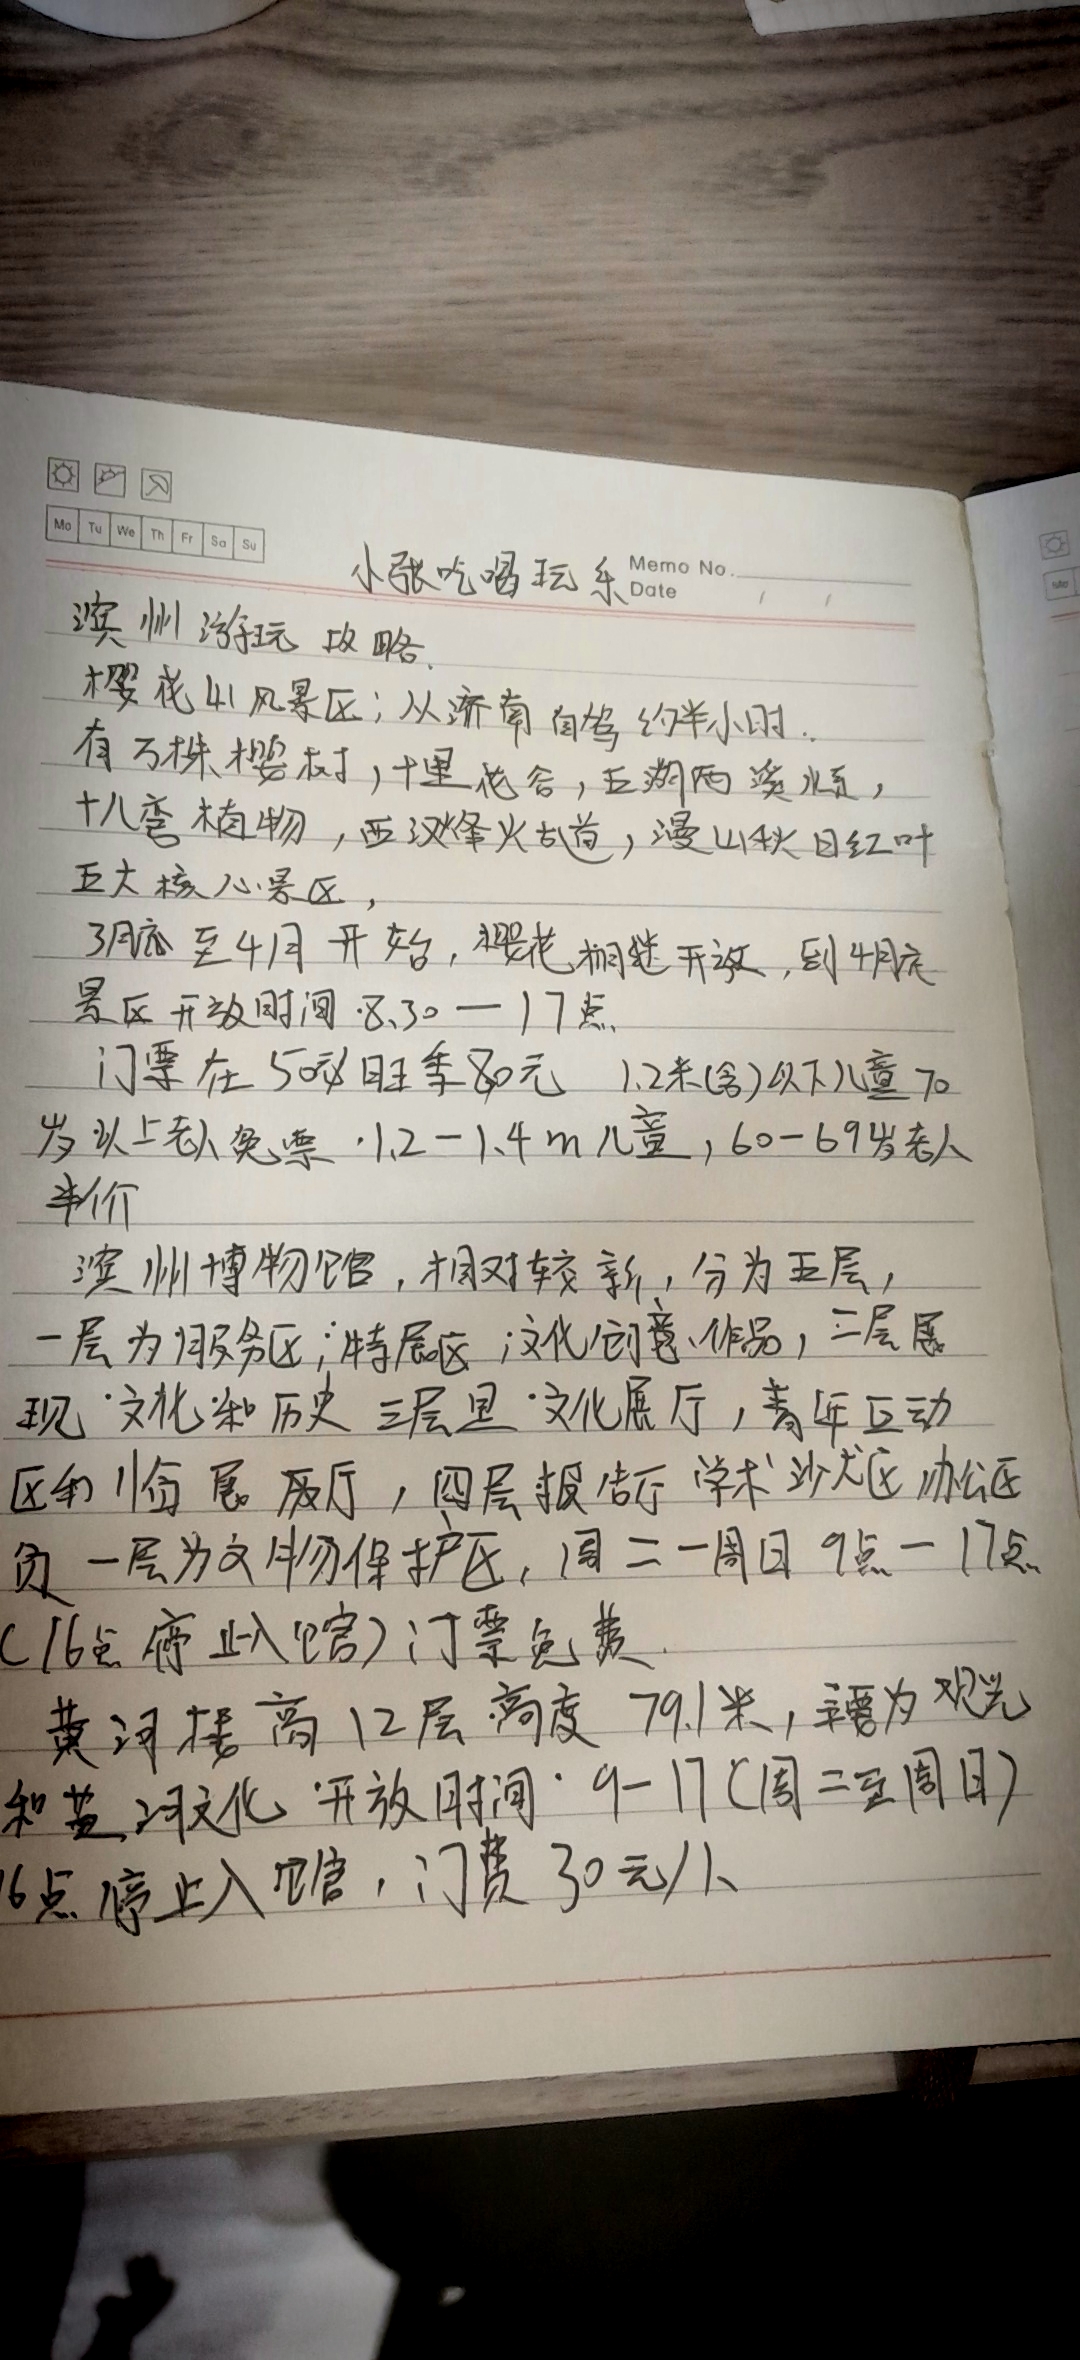 Mo Tu We Th Fr Sa Su
小张吃喝玩乐
Memo No.
Date / /
滨州游玩攻略.
樱花山风景区;从济南自驾约半小时.
有万株樱树,十里花谷,五湖两溪水系,
十八弯植物,西汉烽火古道,漫山秋日红叶
五大核心景区,
3月底至4月开始,樱花相继开放,到4月底
景区开放时间.8.30—17点
门票在50元 旺季80元 1.2米(含)以下儿童70
岁以上老人免票.1.2-1.4m儿童,60-69岁老人
半价
滨州博物馆,相对较新,分为五层,
一层为服务区;特展区;文化创意作品,二层展
现文化和历史三层是文化展厅,青年互动
区和临展展厅,四层报告厅学术沙龙区办公区
负一层为文物保护区,周二一周日9点—17点
(16点停止入馆)门票免费.
黄河楼高12层高度79.1米,主要为观光
和黄河文化 开放时间.9-17(周二至周日)
16点停止入馆,门费30元/人